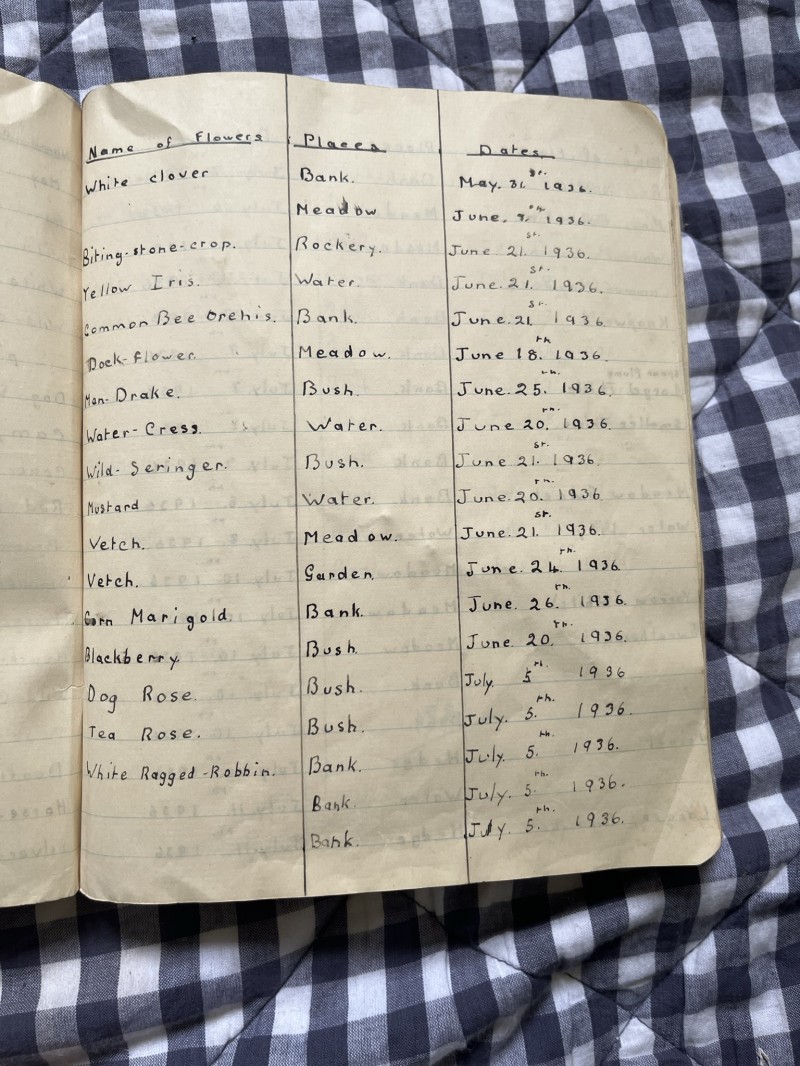 Name of Flowers Places Dates
White clover Bank. May. 31st. 1936.
Meadow June. 9th. 1936.
Biting-stone-crop. Rockery. June 21st. 1936.
Yellow Iris. Water. June. 21st. 1936.
Common Bee Orchis. Bank. June. 21st 1936.
Dock-flower. Meadow. June 18th. 1936.
Man-Drake. Bush. June. 25th. 1936.
Water-Cress. Water. June 20th. 1936.
Wild-Seringer. Bush. June 21st. 1936.
Mustard Water. June. 20th. 1936
Vetch. Meadow. June. 21st. 1936.
Vetch. Garden. June. 24th. 1936
Corn Marigold. Bank. June. 26th. 1936.
Blackberry. Bush. June. 20th. 1936.
Dog Rose. Bush. July. 5th. 1936
Tea Rose. Bush. July. 5th. 1936.
White Ragged-Robbin. Bank. July. 5th. 1936.
Bank. July. 5th. 1936.
Bank. July. 5th. 1936.